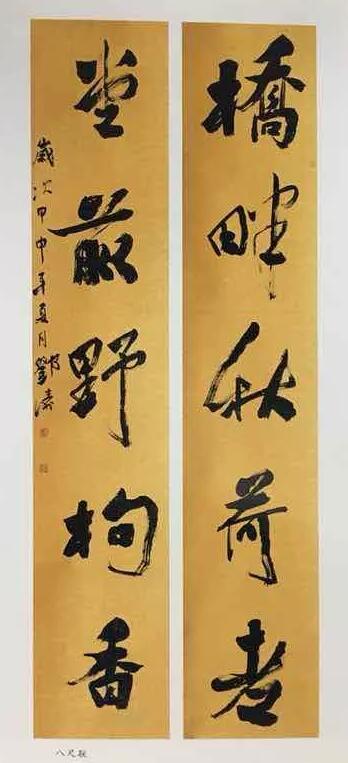 橋畔秋荷老
堂前野枸香
歲次甲申年夏月劉濤
八尺联